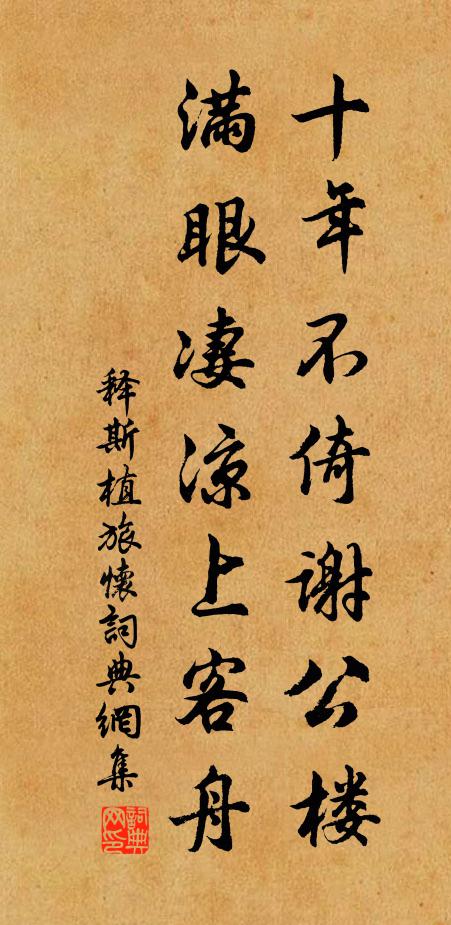 十年不倚谢公楼
满眼凄凉上客舟
释斯植旅懷詞典網集
詞典网印